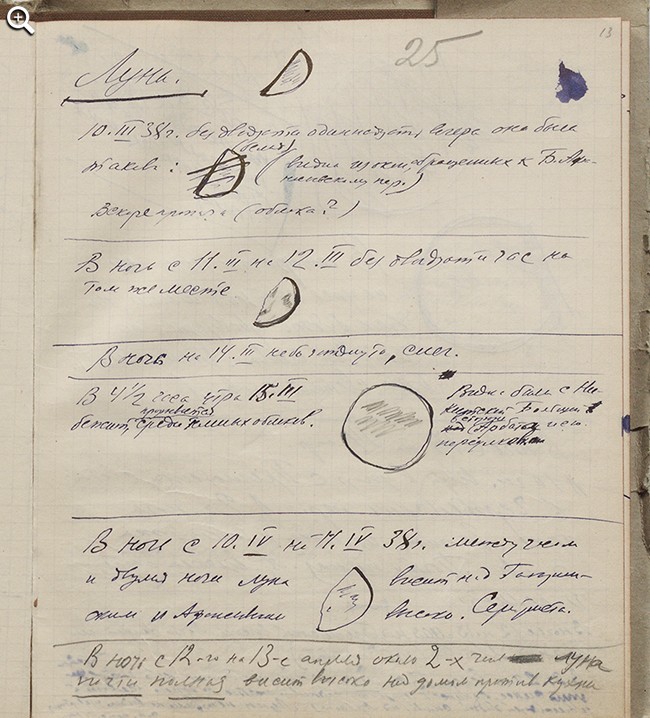 13
25
Луна.
10.III 38 г. без двадцати одиннадцать вечера она была
такова: (белая) (видна из окон, обращенных к Б. Афа-
насьевскому пер.)
Вскоре пропала (облака?)
В ночь с 11.III на 12.III без двадцати час на
том же месте
В ночь на 14.III небо затянуто, снег.
В 4 1/2 часа утра 15.III
прорывается
бежит среди облаков.
Видна была с Ни-
китской
над Арбатом
переулком
В ночь с 10.IV на 11.IV 38 г. между часом
и двумя ночи луна висит над Гагарин-
ским и Афанасьевским высоко. Серебриста.
В ночь с 12-го на 13-е апреля около 2-х луна
почти полная висит высоко над домом против кухни